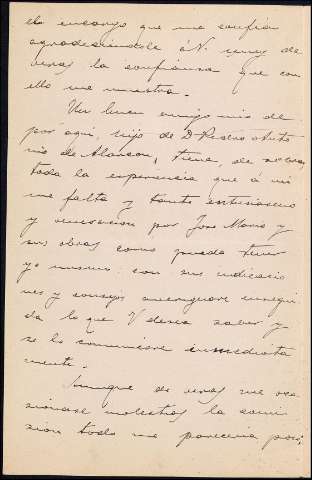 el encargo que me confia
agradeciendole á V. muy de
veras la confianza que con
ello me muestra.
Un buen amigo mio de
por aqui, hijo de D. Pedro Anto
nio de Alarcon, tiene, de sobra,
toda la experiencia que á mi
me falta y tanto entusiasmo
y veneracion por Jose Maria y
sus obras como pueda tener
yo mismo: con sus indicacio
nes y consejos averiguare ensegui
da lo que V desea saber y
se lo comunicare inmediata
mente.
Aunque de veras me oca
sionase molestias la comi
sion todo me pareceria poco,